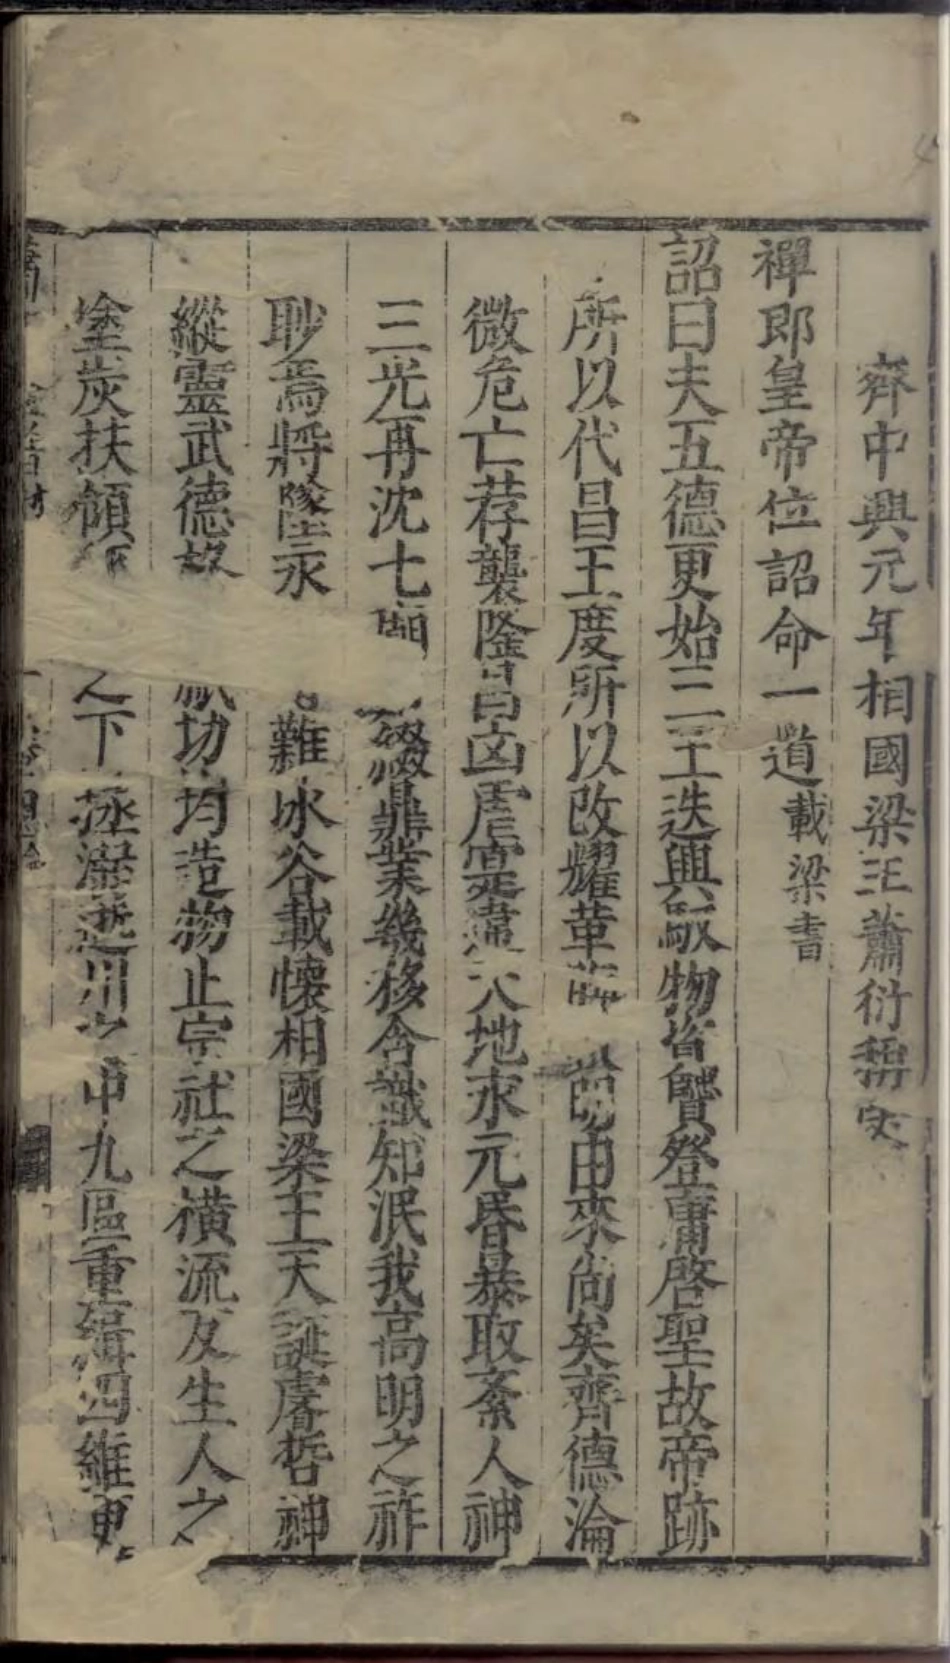 齊中興元年相國梁王蕭衍受
禪即皇帝位詔命一道載梁書
詔曰夫五德更始三王迭興馭物資賢登庸啓聖故帝跡
所以代昌王度所以改耀革晦由來尚矣齊德淪
微危亡荐襲隆昌凶虐寔違天地永元昏暴取紊人神
三光再沈七廟綴鼎業幾移含識知泯我高明之祚
眇焉將墜永難冰谷載懷相國梁王天誕睿哲神
縱靈武德切均造物止宗社之橫流反生人之
塗炭扶傾之下拯溺逝川之中九區重緝四維更